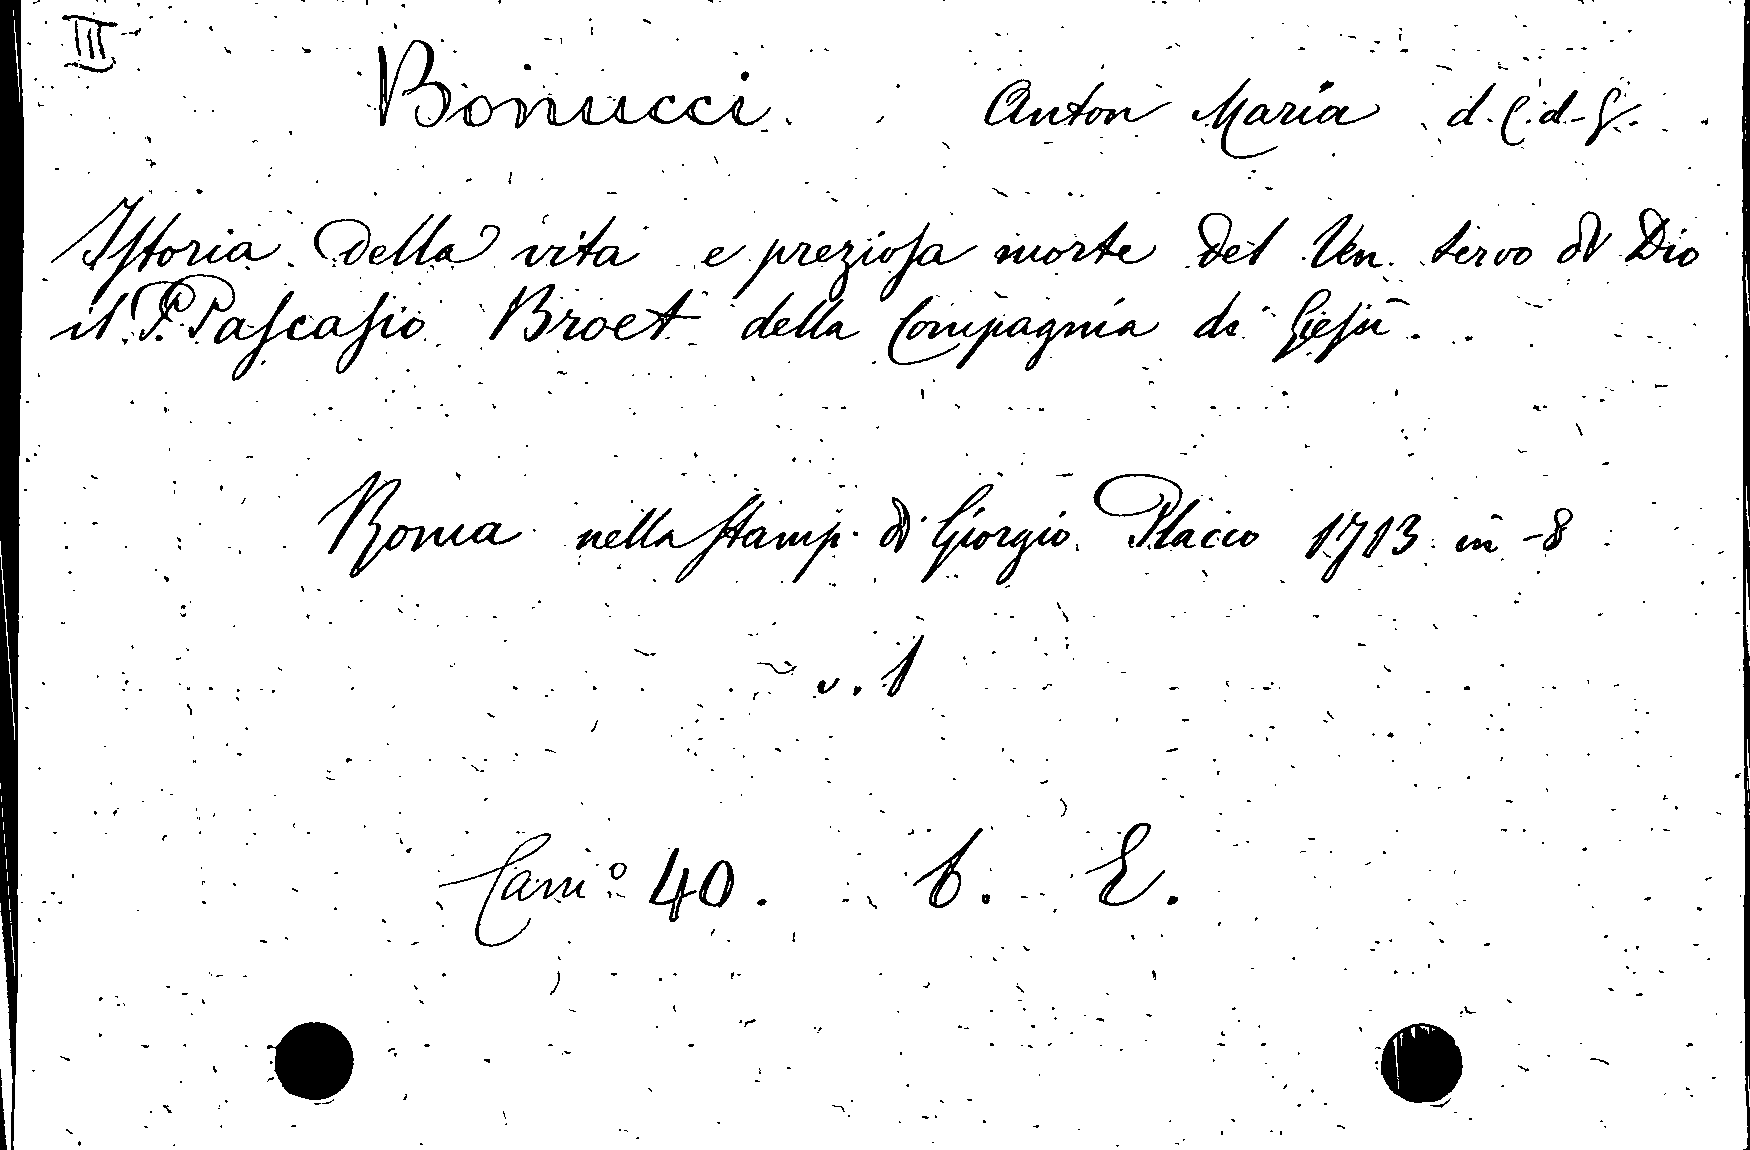 III
Bonucci Anton Maria d. C. d. G.
Istoria della vita e preziosa morte del Ven. servo di Dio
il P. Pascasio Broet della Compagnia di Gesù.
Roma nella stamp. di Giorgio Placco 1713 in -8
v. 1
Cam.º 40. b. E.